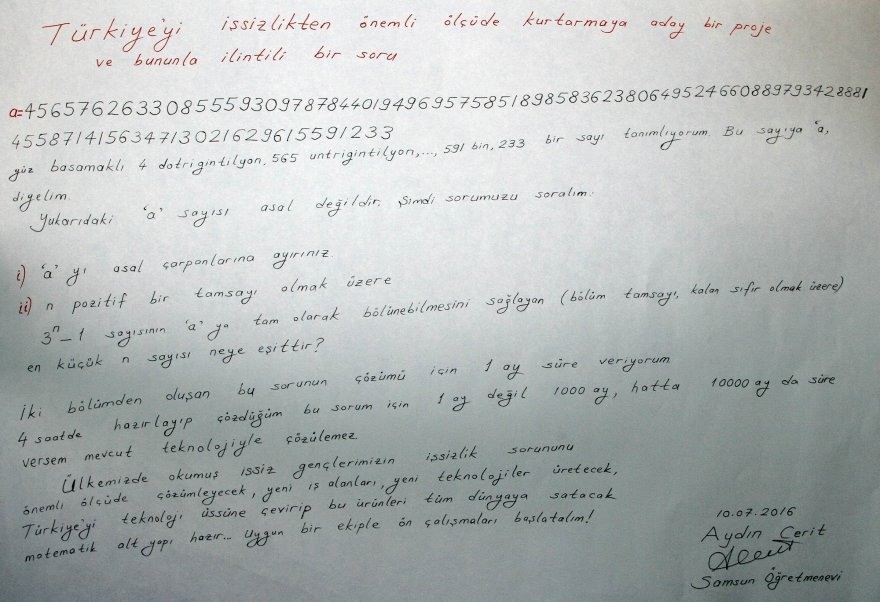 Türkiye'yi issizlikten önemli ölçüde kurtarmaya aday bir proje
ve bununla ilintili bir soru
a=4565762633085559309787844019496957585189858362380649524660889793428881
455871415634713021629615591233
yüz basamaklı 4 dotrigintilyon, 565 untrigintilyon,..., 591 bin, 233 bir sayı tanımlıyorum. Bu sayıya 'a,
diyelim.
Yukarıdaki 'a' sayısı asal değildir. Şimdi sorumuzu soralım:
i) 'a' yı asal çarpanlarına ayırınız.
ii) n pozitif bir tamsayı olmak üzere
3ⁿ-1 sayısının 'a' ya tam olarak bölünebilmesini sağlayan (bölüm tamsayı, kalan sıfır olmak üzere)
en küçük n sayısı neye eşittir?
İki bölümden oluşan bu sorunun çözümü için 1 ay süre veriyorum
4 saatde hazırlayıp çözdüğüm bu sorum için 1 ay değil 1000 ay, hatta 10000 ay da süre
versem mevcut teknolojiyle çözülemez.
Ülkemizde okumuş issiz gençlerimizin işsizlik sorununu
önemli ölçüde çözümleyecek, yeni iş alanları, yeni teknolojiler üretecek,
Türkiye'yi teknoloji üssüne çevirip bu ürünleri tüm dünyaya satacak
matematik alt yapı hazır... Uygun bir ekiple ön çalışmaları başlatalım!
10.07.2016
Aydın Cerit
Samsun Öğretmenevi